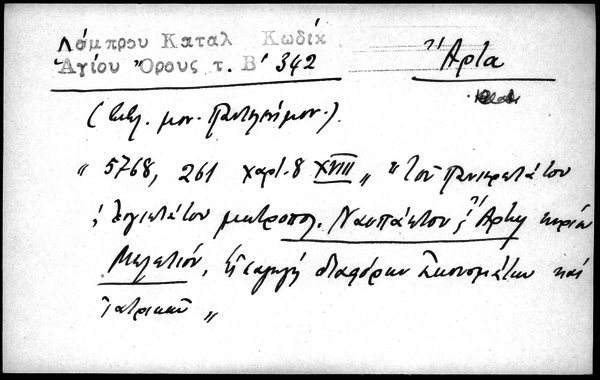 Λάμπρου Καταλ Κωδίκ
Ἁγίου Ὄρους τ. Β' 342
Ἄρτα
(Βιβλ. μον. Παντελεήμον.).
" 5768, 261 χαρτ. 8 XVIII " "τοῦ Πανιερωτάτου
λογιωτάτου μητροπολ. Ναυπάκτου Ἄρτης κυρίου
Μελετίου, Εἰσαγωγή διαφόρων καί
Ἰατρικῶν "